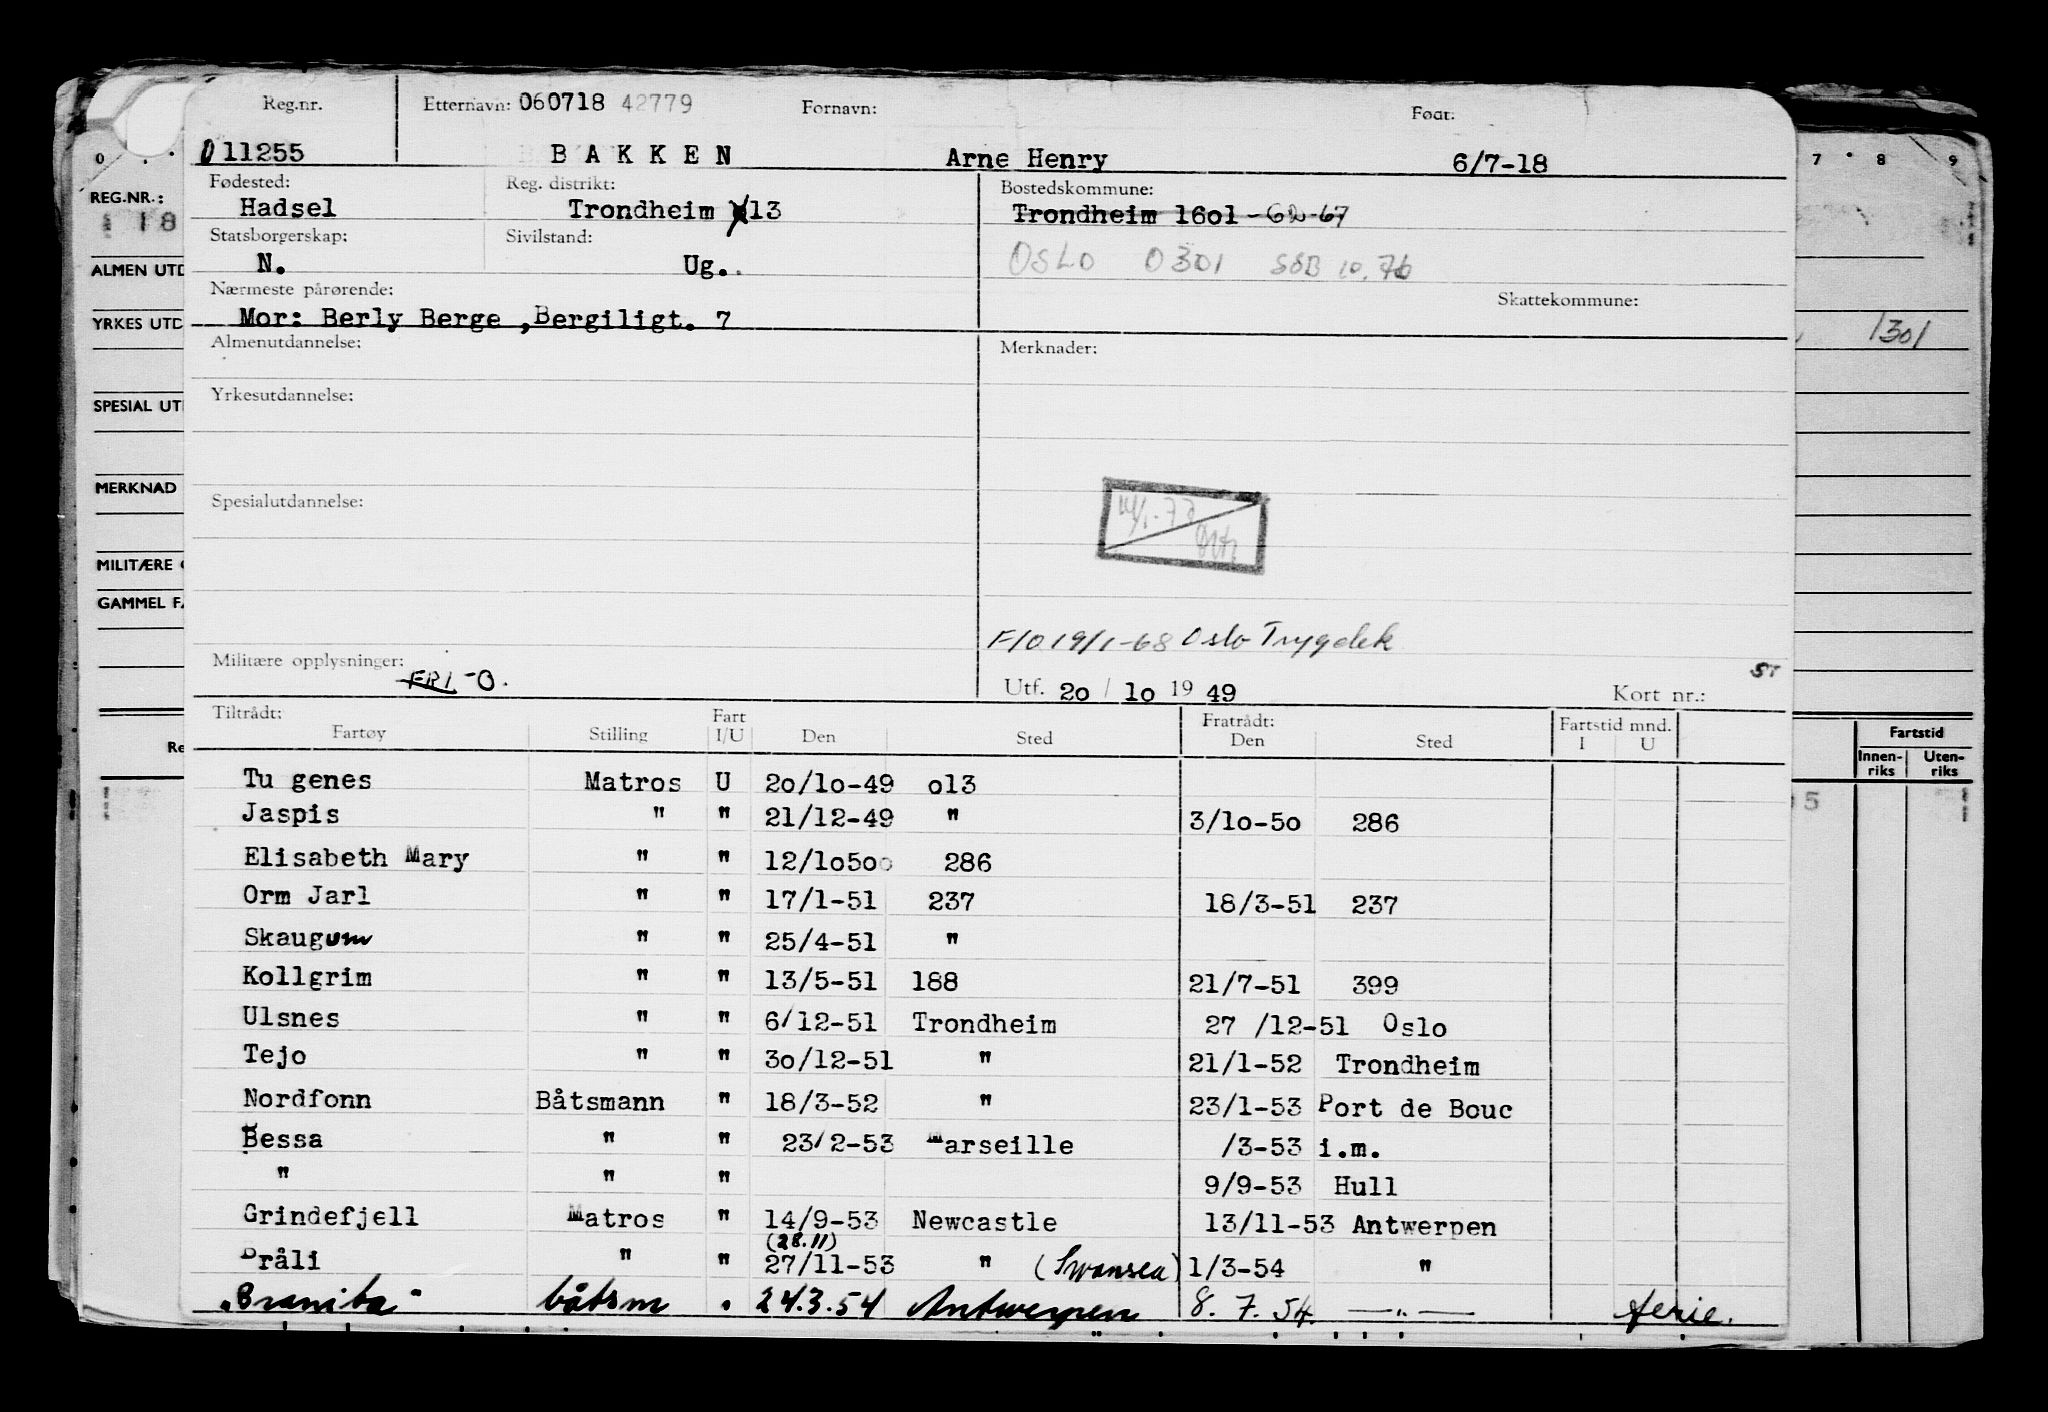 Reg.nr. Etternavn: 060718 42779 Fornavn: Født:
011255 BAKKEN Arne Henry 6/7-18
Fødested: Reg. distrikt: Bostedskommune:
Hadsel Trondheim 13 Trondheim 16o1 -67
Statsborgerskap: Sivilstand:
N. Ug. OSLO 0301 SSB 10.76
Nærmeste pårørende: Skattekommune:
Mor: Berly Berge ,Bergiligt. 7
Almenutdannelse: Merknader:
Yrkesutdannelse:
Spesialutdannelse:
F/O 19/1-68 Oslo Trygdek
Militære opplysninger: FRI-O. ST
Utf. 2o / 1o 19 49 Kort nr.:
Tiltrådt: Fart Fratrådt: Fartstid mnd.
Fartøy Stilling I/U Den Sted Den Sted I U
Tu genes Matros U 2o/1o-49 o13
Jaspis " " 21/12-49 " 3/1o-5o 286
Elisabeth Mary " " 12/1o5oo 286
Orm Jarl " " 17/1-51 237 18/3-51 237
Skaugum " " 25/4-51 "
Kollgrim " " 13/5-51 188 21/7-51 399
Ulsnes " " 6/12-51 Trondheim 27 /12-51 Oslo
Tejo " " 3o/12-51 " 21/1-52 Trondheim
Nordfonn Båtsmann " 18/3-52 " 23/1-53 Port de Bouc
Bessa " " 23/2-53 Marseille /3-53 i.m.
" " " 9/9-53 Hull
Grindefjell Matros " 14/9-53 Newcastle 13/11-53 Antwerpen
(28.11)
Bråli " " 27/11-53 " (Swansea) 1/3-54 "
„Branita" båtsm . 24.3.54 Antwerpen 8.7.54. —"— ferie.
0 7 8 9
REG.NR.:
18
ALMEN UTD
YRKES UTD
1301
SPESIAL UT
MERKNAD
MILITÆRE
GAMMEL FA
Re
Fartstid
Innen-
riks
Uten-
riks